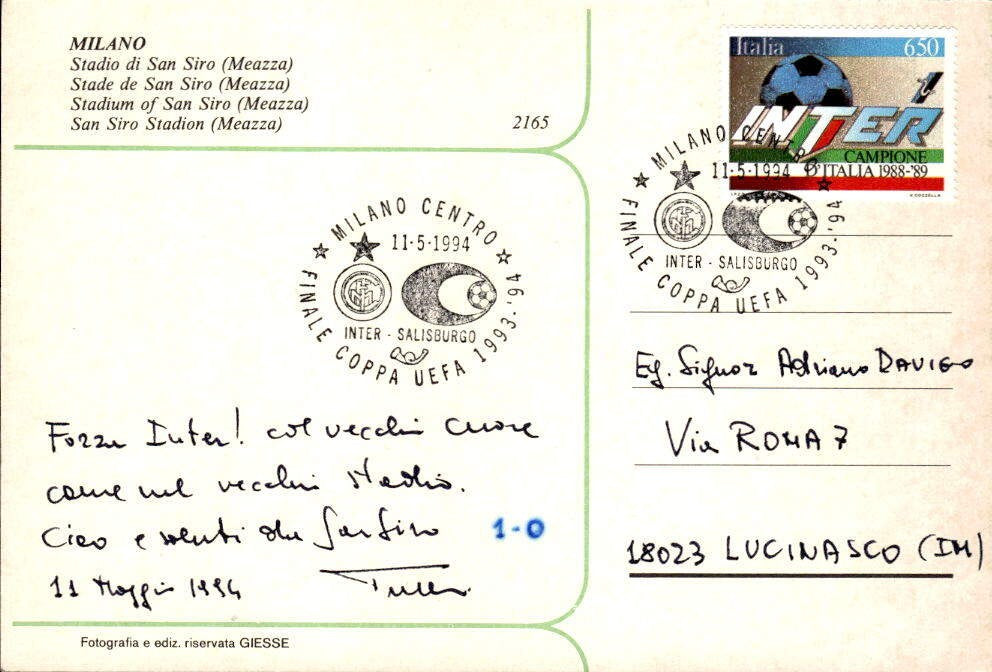 MILANO
Stadio di San Siro (Meazza)
Stade de San Siro (Meazza)
Stadium of San Siro (Meazza)
San Siro Stadion (Meazza)
2165
Italia 650
INTER
CAMPIONE
D'ITALIA 1988-'89
MILANO CENTRO
11-5-1994
INTER - SALISBURGO
FINALE COPPA UEFA 1993-'94
MILANO CENTRO
11-5-1994
INTER - SALISBURGO
FINALE COPPA UEFA 1993-'94
Forza Inter! col vecchio cuore
come nel vecchio stadio.
Ciao e saluti da San Siro
1-0
11 Maggio 1994
Eg. Signor Adriano DAVIGO
Via ROMA 7
18023 LUCINASCO (IM)
Fotografia e ediz. riservata GIESSE